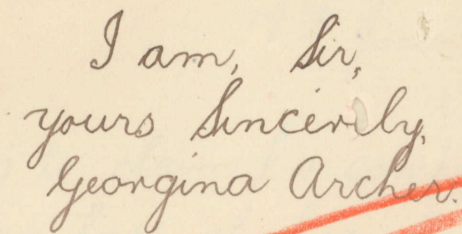 I am, Sir,
yours Sincerely,
Georgina Archer.